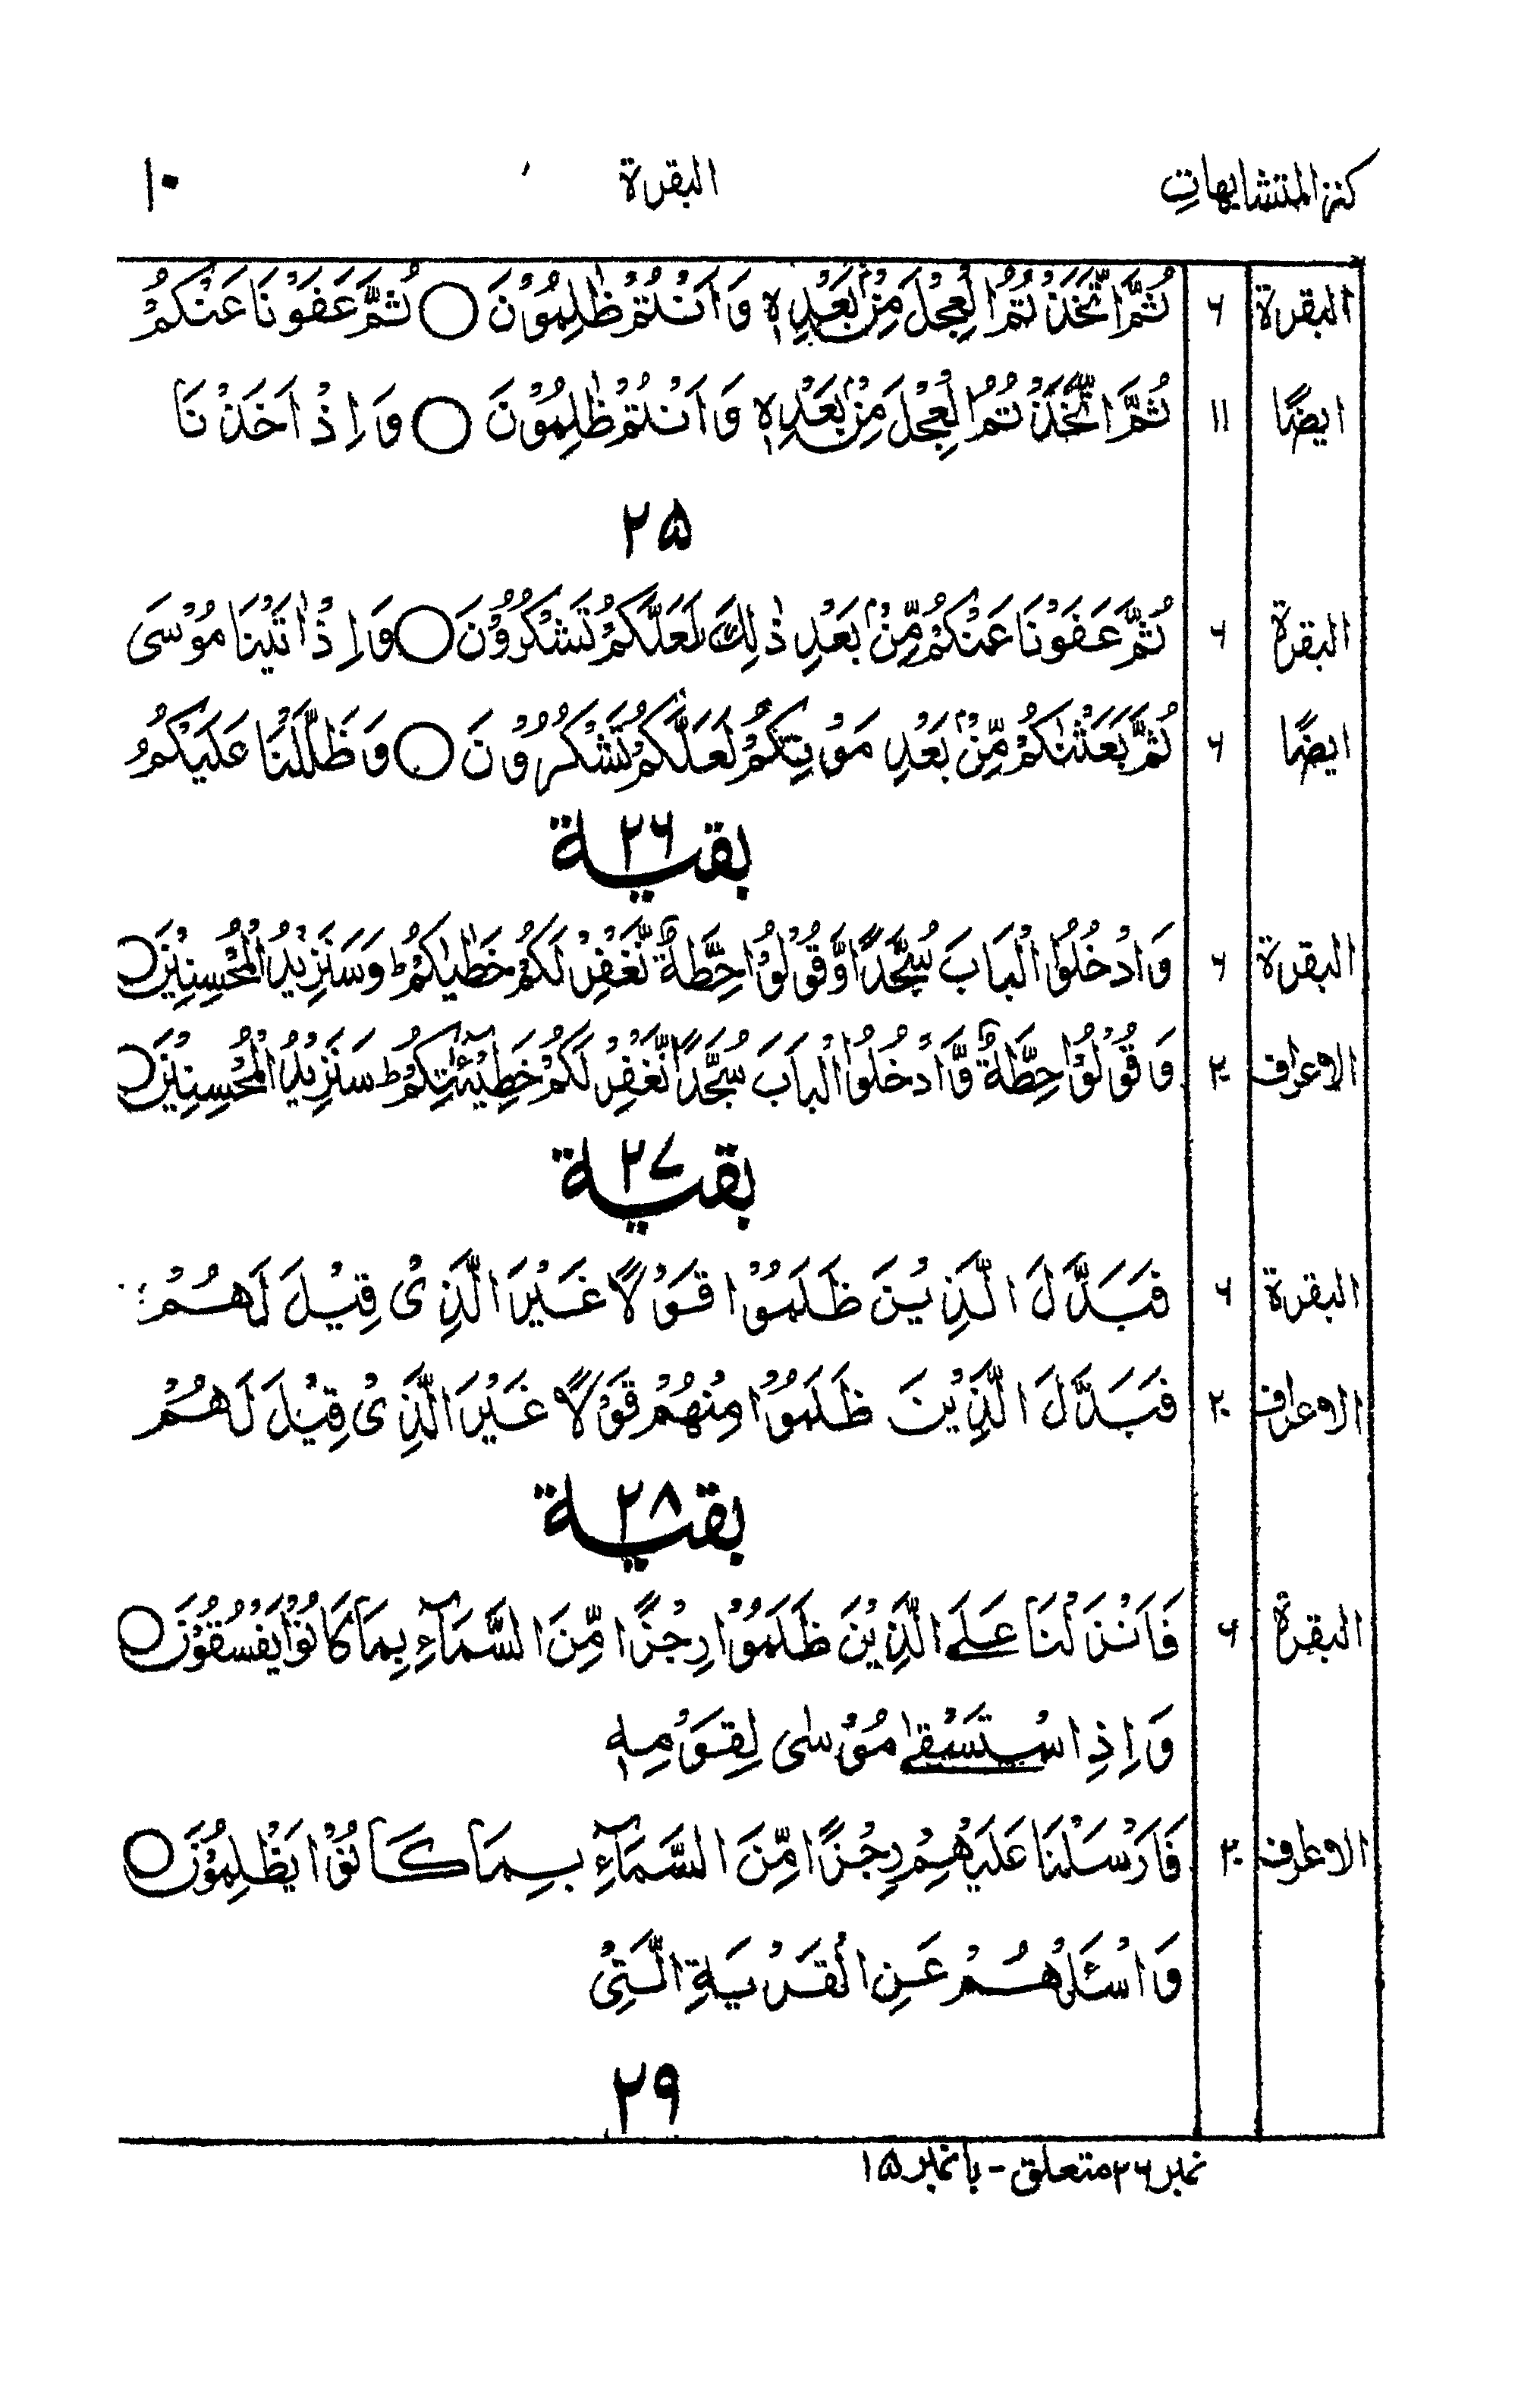 كنز المتشابهاتِ البقرة ١٠
البقرة ۶ ثُمَّ اتَّخَذْتُمُ الْعِجْلَ مِنْۢ بَعْدِهٖ وَاَنْتُمْ ظٰلِمُوْنَ ○ ثُمَّ عَفَوْنَا عَنْكُمْ
ايضًا ١١ ثُمَّ اتَّخَذْتُمُ الْعِجْلَ مِنْۢ بَعْدِهٖ وَاَنْتُمْ ظٰلِمُوْنَ ○ وَاِذْ اَخَذْنَا
۲۵
البقرة ۶ ثُمَّ عَفَوْنَا عَنْكُمْ مِّنْۢ بَعْدِ ذٰلِكَ لَعَلَّكُمْ تَشْكُرُوْنَ ○ وَاِذْ اٰتَيْنَا مُوْسَى
ايضًا ۶ ثُمَّ بَعَثْنٰكُمْ مِّنْۢ بَعْدِ مَوْتِكُمْ لَعَلَّكُمْ تَشْكُرُوْنَ ○ وَظَلَّلْنَا عَلَيْكُمُ
بقية ۲۶
البقرة ۶ وَادْخُلُوا الْبَابَ سُجَّدًا وَّقُوْلُوْا حِطَّةٌ نَّغْفِرْ لَكُمْ خَطٰيٰكُمْ ؕ وَسَنَزِيْدُ الْمُحْسِنِيْنَ ○
الاعراف ۲۰ وَقُوْلُوْا حِطَّةٌ وَّادْخُلُوا الْبَابَ سُجَّدًا نَّغْفِرْ لَكُمْ خَطِيْٓـٰٔتِكُمْ ؕ سَنَزِيْدُ الْمُحْسِنِيْنَ ○
بقية ۲۷
البقرة ۶ فَبَدَّلَ الَّذِيْنَ ظَلَمُوْا قَوْلًا غَيْرَ الَّذِيْ قِيْلَ لَهُمْ
الاعراف ۲۰ فَبَدَّلَ الَّذِيْنَ ظَلَمُوْا مِنْهُمْ قَوْلًا غَيْرَ الَّذِيْ قِيْلَ لَهُمْ
بقية ۲۸
البقرة ۶ فَاَنْزَلْنَا عَلَى الَّذِيْنَ ظَلَمُوْا رِجْزًا مِّنَ السَّمَآءِ بِمَا كَانُوْا يَفْسُقُوْنَ ○
وَاِذِ اسْتَسْقٰى مُوْسٰى لِقَوْمِهٖ
الاعراف ۲۰ فَاَرْسَلْنَا عَلَيْهِمْ رِجْزًا مِّنَ السَّمَآءِ بِمَا كَانُوْا يَظْلِمُوْنَ ○
وَاسْئَلْهُمْ عَنِ الْقَرْيَةِ الَّتِيْ
۲۹
نمبر ۲۶ متعلق - با نمبر ۱۵